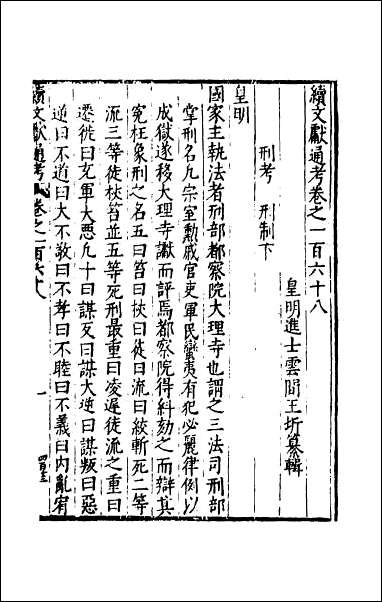 續文獻通考卷之一百六十八
皇明進士雲間王圻纂輯
刑考　刑制下
皇明
國家主執法者刑部都察院大理寺也謂之三法司刑部
掌刑名凡宗室勲戚官吏軍民蠻夷有犯必麗律例以
成獄遂移大理寺讞而評焉都察院得糾劾之而辯其
寃枉象刑之名五曰笞曰杖曰徒曰流曰絞斬死二等
流三等徒杖笞並五等死刑最重曰凌遲徒流之重曰
遷徙曰充軍大惡凡十曰謀反曰謀大逆曰謀叛曰惡
逆曰不道曰大不敬曰不孝曰不睦曰不義曰內亂宥
續文獻通考
卷之一百六十八
一